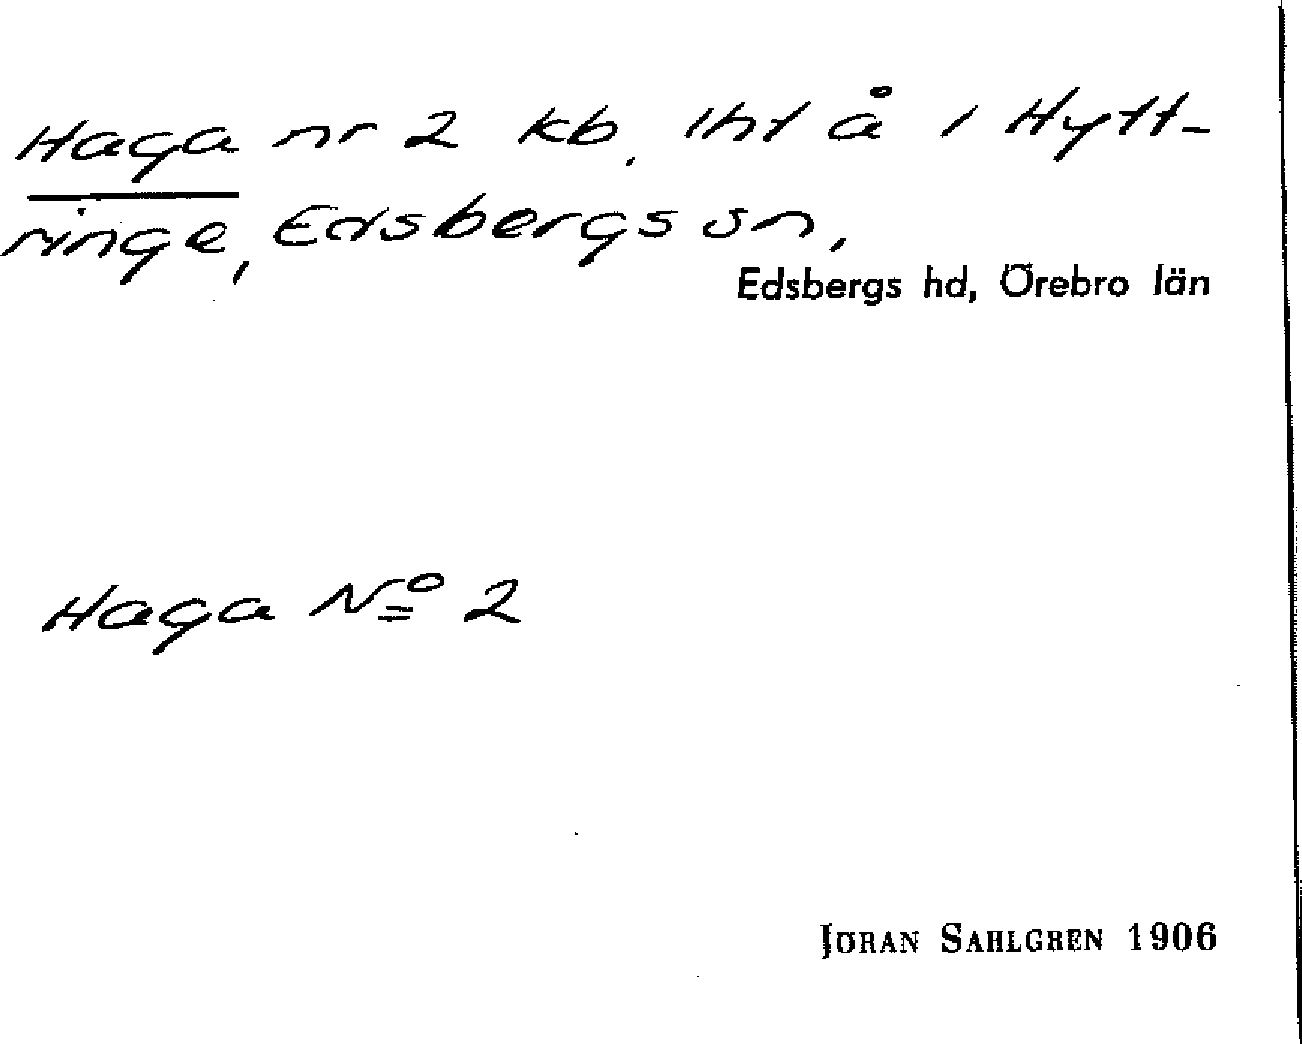 Haga nr 2 kb. lht å i Hytt-
ringe, Edsbergs sn,
Edsbergs hd, Örebro län
Haga No 2
JÖRAN SAHLGREN 1906